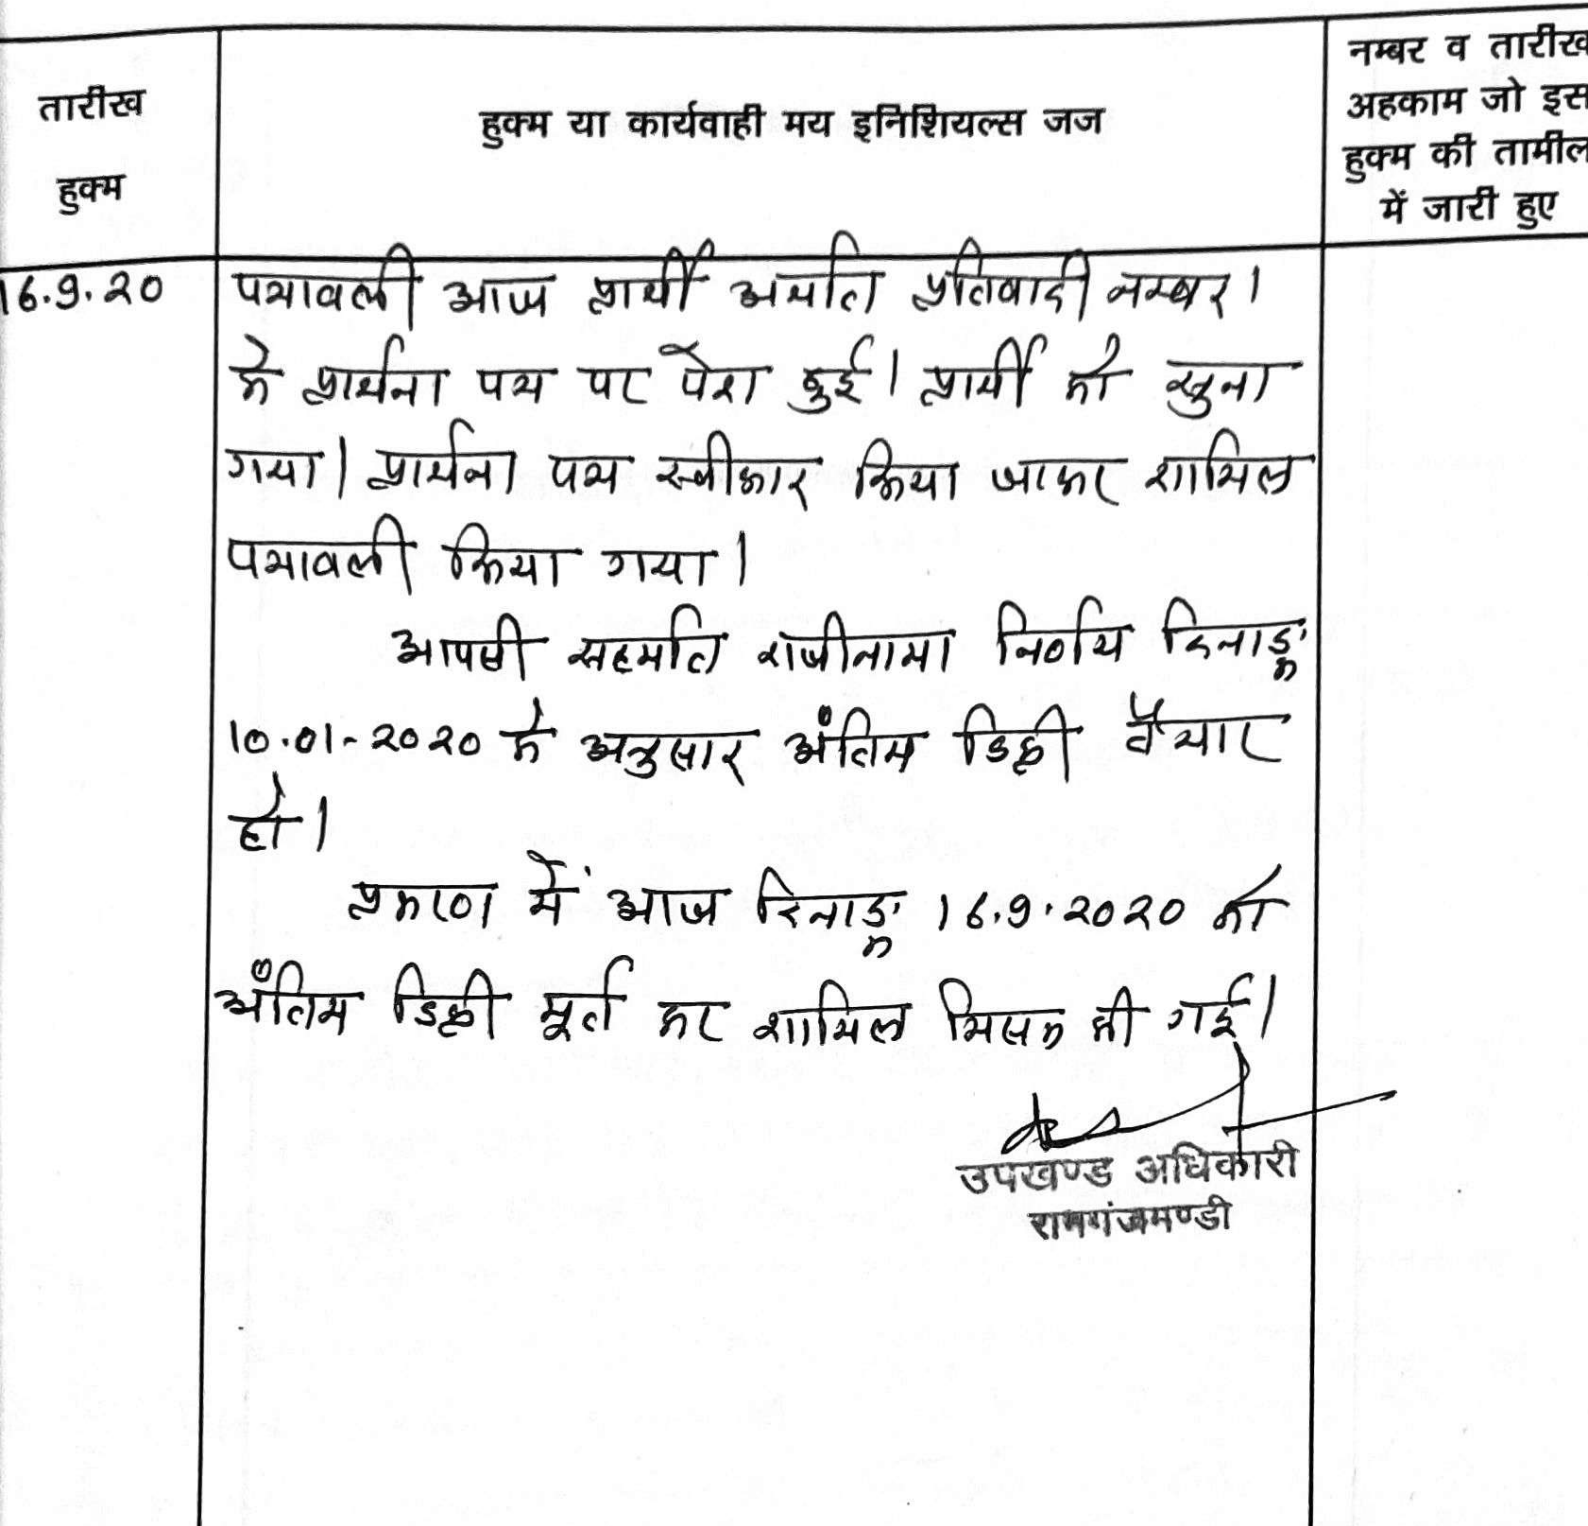 तारीख
हुक्म
हुक्म या कार्यवाही मय इनिशियल्स जज
नम्बर व तारीख
अहकाम जो इस
हुक्म की तामील
में जारी हुए
16.9.20
पत्रावली आज प्रार्थी अर्थात प्रतिवादी नम्बर 1
के प्रार्थना पत्र पर पेश हुई। प्रार्थी को सुना
गया। प्रार्थना पत्र स्वीकार किया जाकर शामिल
पत्रावली किया गया।
आपसी सहमति राजीनामा निर्णय दिनाङ्क
10.01-2020 के अनुसार अंतिम डिक्री तैयार
हो।
प्रकरण में आज दिनाङ्क 16.9.2020 को
अंतिम डिक्री मूर्त कर शामिल मिसल की गई।
उपखण्ड अधिकारी
रामगंजमण्डी